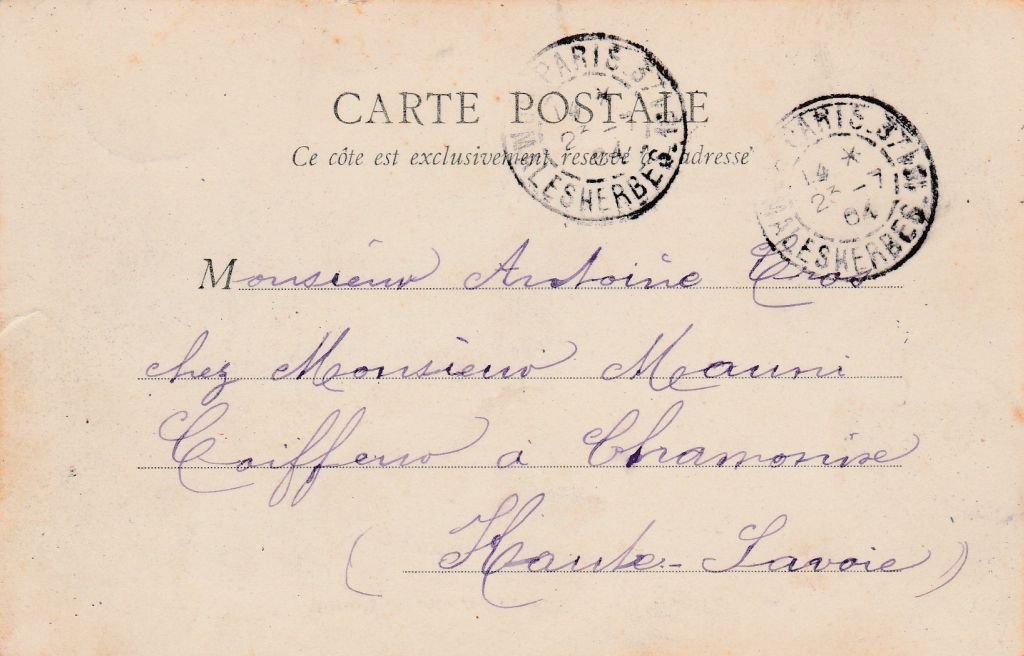 CARTE POSTALE
Ce côte est exclusivement reservé à l'adresse
PARIS.37
14 *
23 -7
04
MALESHERBES
PARIS.37
14 *
23 -7
04
MALESHERBES
Monsieur Antoine Cros
chez Monsieur Mauni
Coiffeur à Chamonix
(Haute-Savoie)